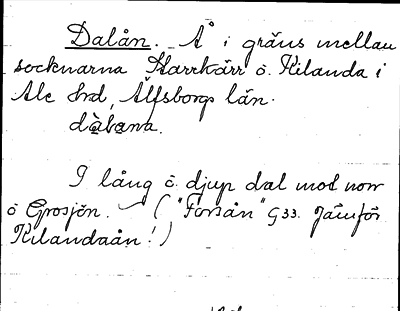 Dalån. Å i gräns mellan
socknarna Starrkärr o. Kilanda i
Ale hrd, Älfsborgs län.
dàlana.
I lång o. djup dal mot norr
ö Grosjön. — ( "Forsån" G33. Jämför
Kilandaån! )